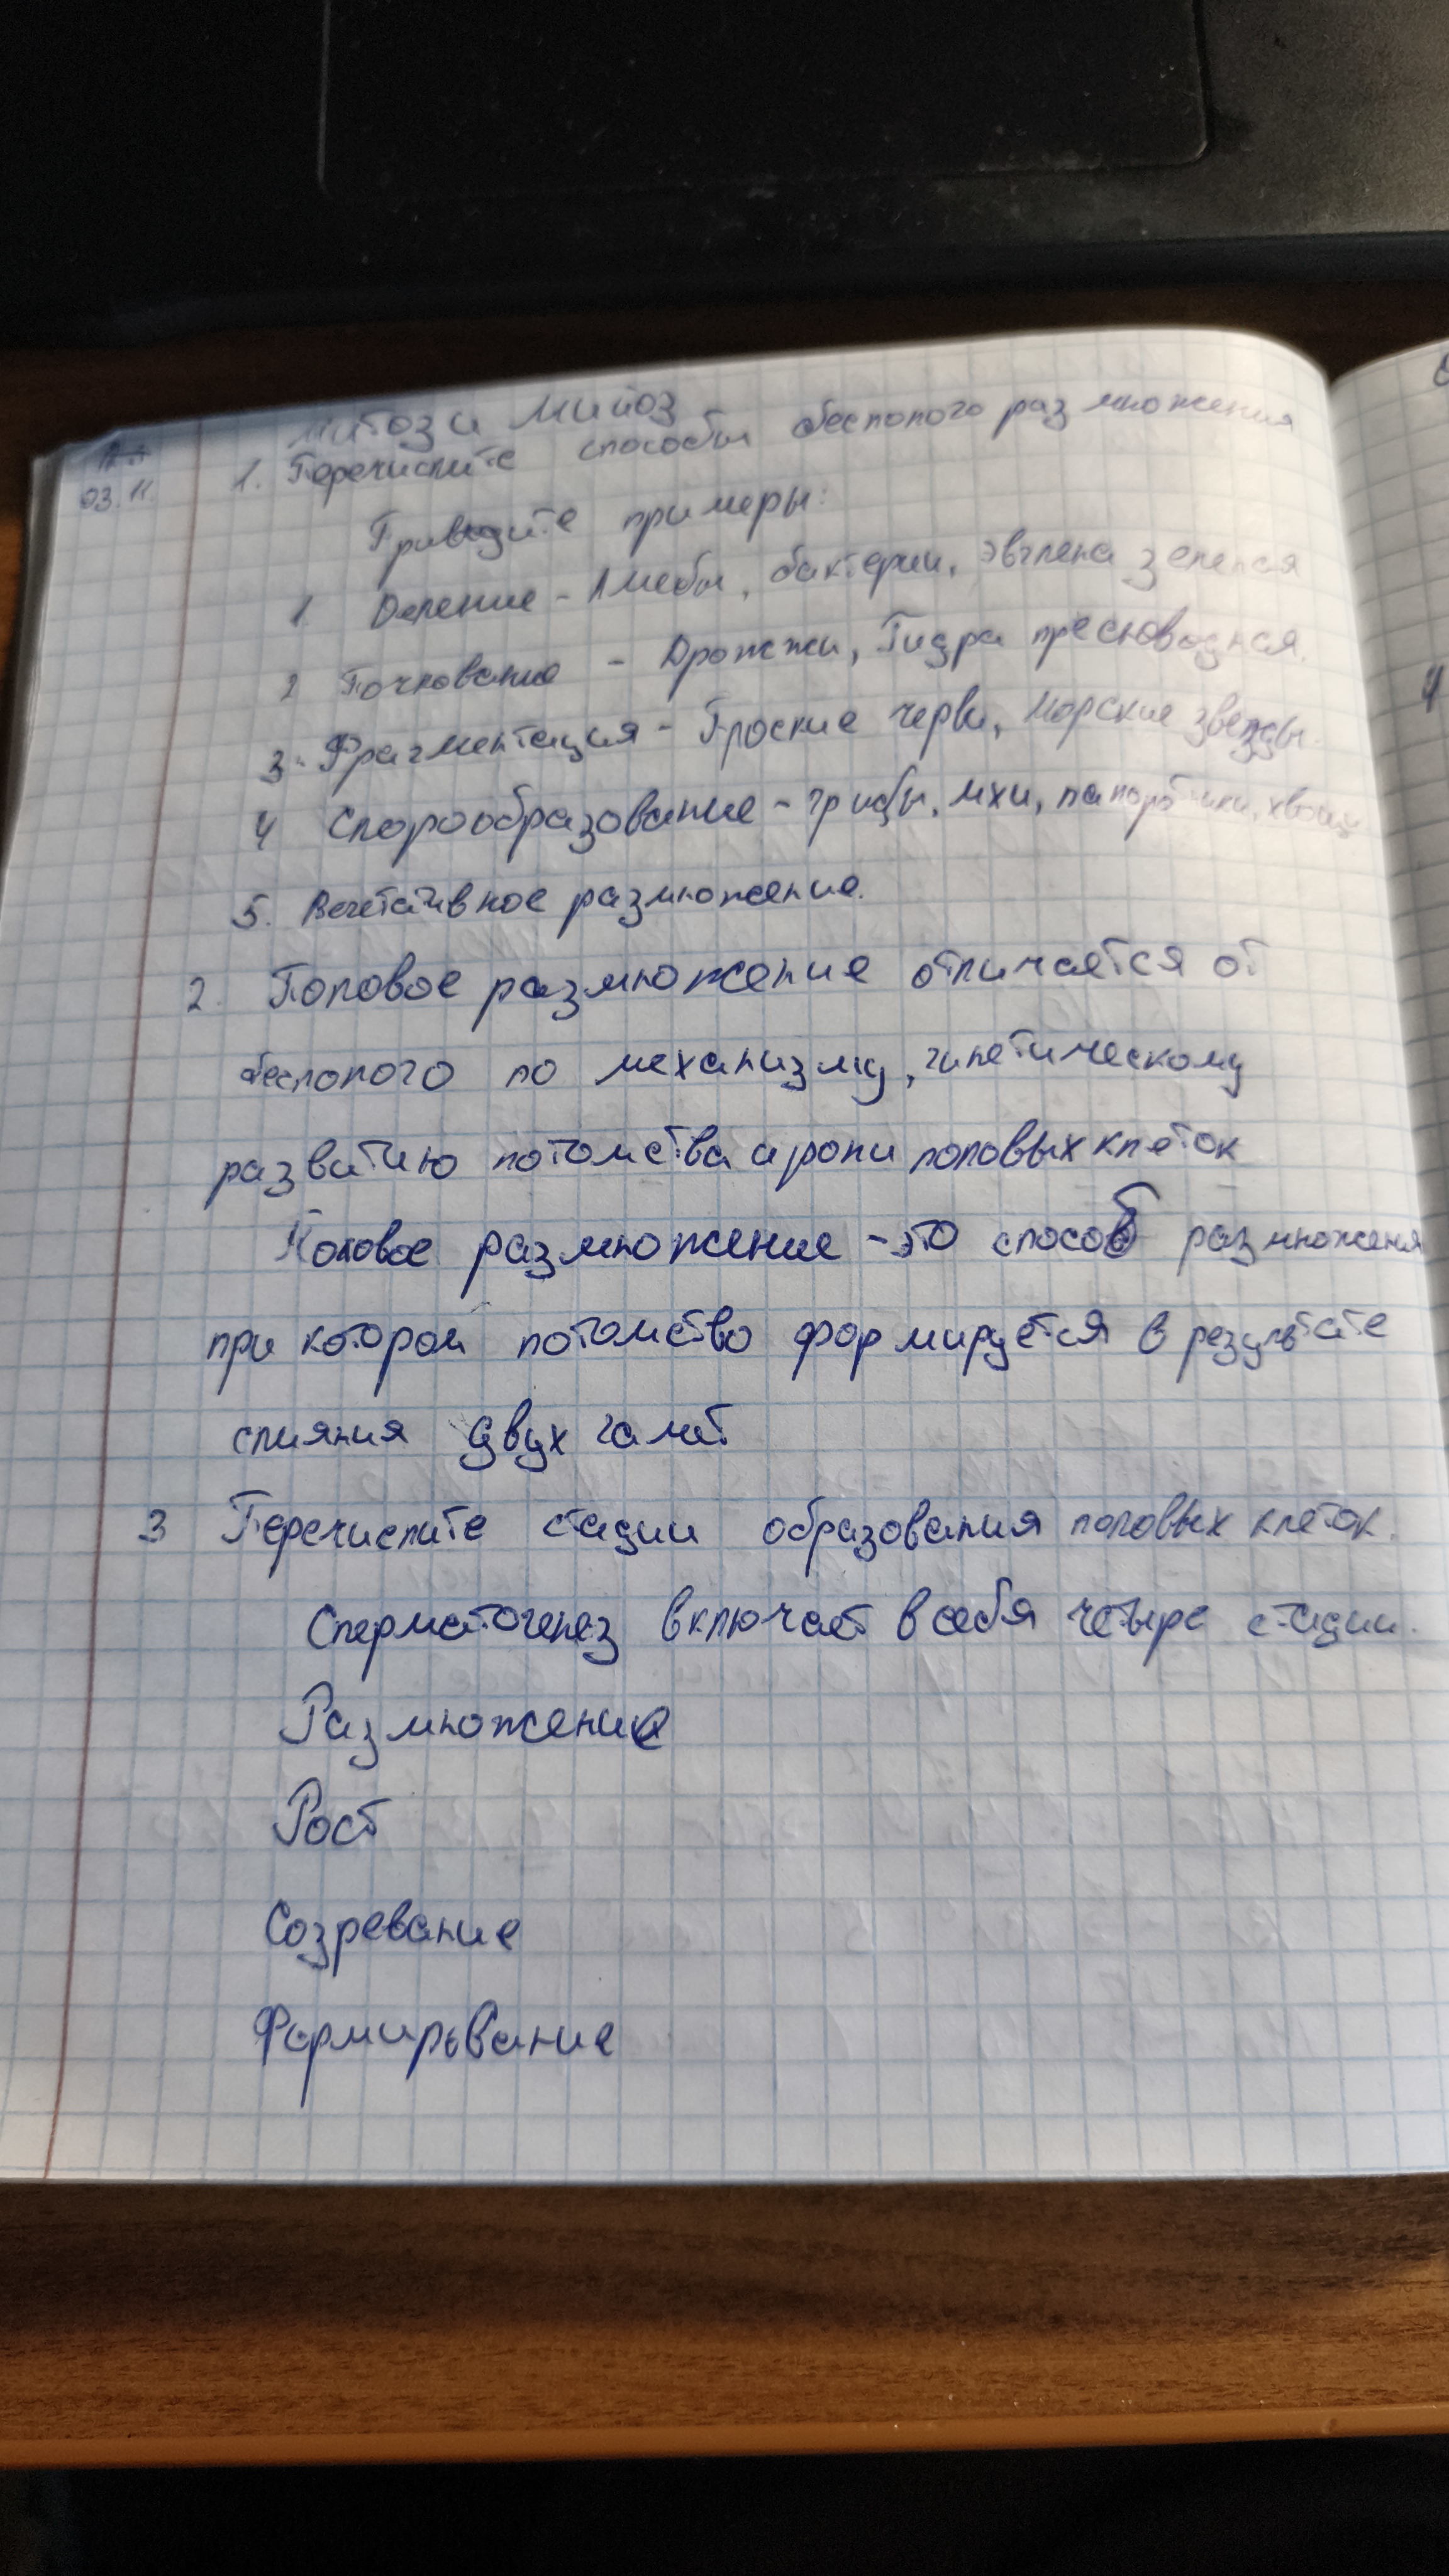 Митоз и Мийоз
03.11.
1. Перечислите способы бесполого размножения
Приведите примеры:
1 Деление - Амебы, бактерии, эвглена зеленая
2 Почкование - Дрожжи, Гидра пресноводная.
3. Фрагментация - Плоские черви, Морские звезды.
4 Спорообразование - грибы, мхи, папоротники, хвощи
5. Вегетативное размножение.
2. Половое размножение отличается от
бесполого по механизму, гинетическому
развитию потомства и роли половых клеток
Половое размножение - это способ размножения
при котором потомство формируется в результате
слияния двух гамет
3 Перечислите стадии образования половых клеток.
Сперматогенез включает в себя четыре стадии.
Размножение
Рост
Созревание
Формирование